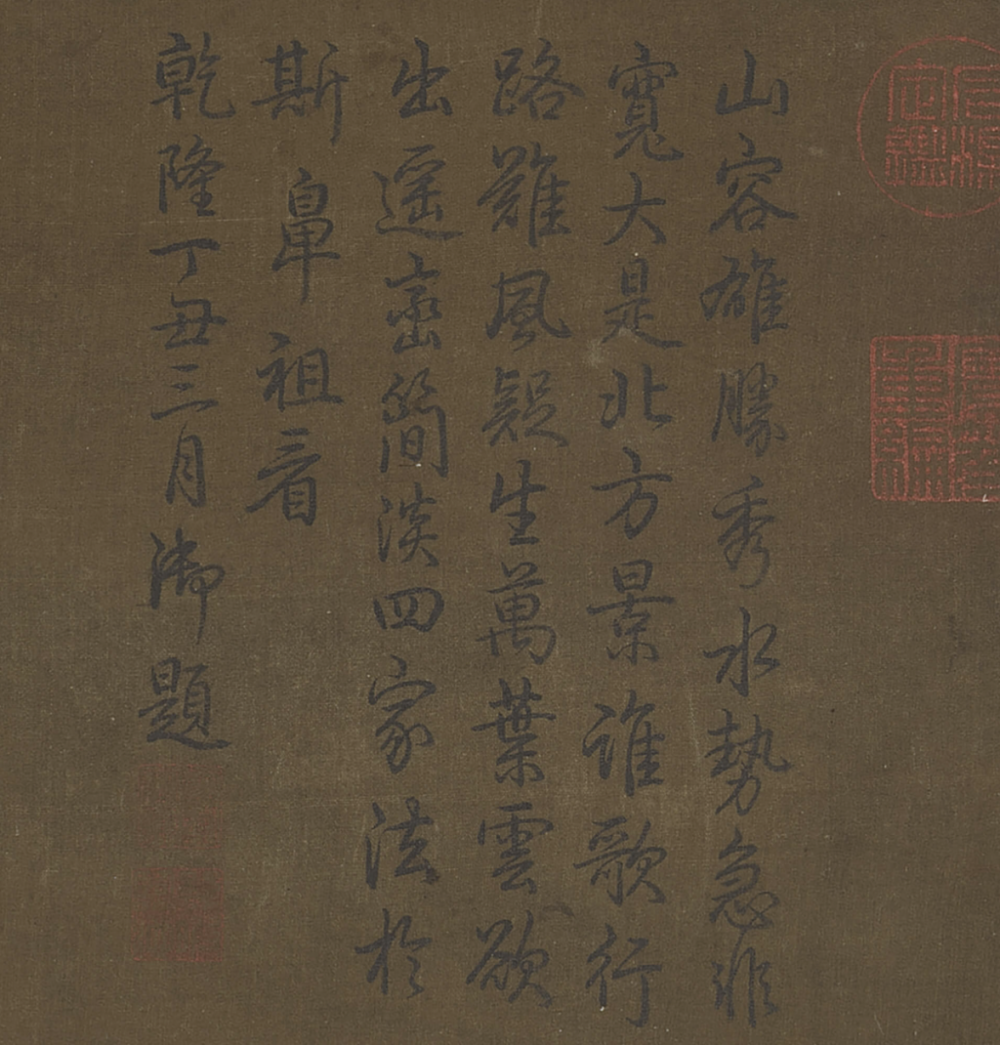 山容雄勝秀水勢急非
寬大是北方景誰歌行
路難風疑生萬葉雲欲
出遥巒簡淡四家法於
斯鼻祖看
乾隆丁丑三月御題